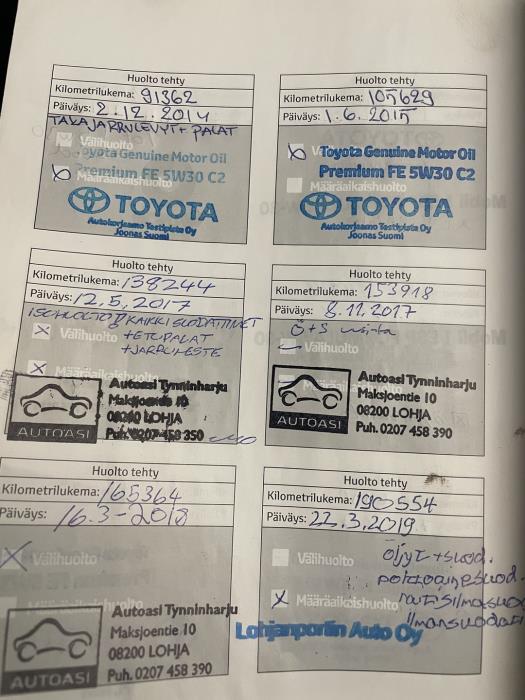 Huolto tehty
Kilometrilukema: 91362
Päiväys: 2.12.2014
TAKAJARRULEVYT + PALAT
Välihuolto
Toyota Genuine Motor Oil
Premium FE 5W30 C2
Määräaikaishuolto
TOYOTA
Autokorjaamo Testiplata Oy
Joonas Suomi
Huolto tehty
Kilometrilukema: 105629
Päiväys: 1.6.2015
Toyota Genuine Motor Oil
Premium FE 5W30 C2
Määräaikaishuolto
TOYOTA
Autokorjaamo Testiplata Oy
Joonas Suomi
Huolto tehty
Kilometrilukema: 138244
Päiväys: 12.5.2017
ISOHUOLTO KAIKKI SUODATTIMET
Välihuolto
+ETUPALAT
+JARRUNESTE
Määräaikaishuolto
AUTOASI
Autoasi Tynninharju
Maksjoentie 10
08200 LOHJA
Puh. 0207 458 390
Huolto tehty
Kilometrilukema: 153918
Päiväys: 8.11.2017
Ö+S
Välihuolto
AUTOASI
Autoasi Tynninharju
Maksjoentie 10
08200 LOHJA
Puh. 0207 458 390
Huolto tehty
Kilometrilukema: 165364
Päiväys: 16.3-2018
Välihuolto
AUTOASI
Autoasi Tynninharju
Maksjoentie 10
08200 LOHJA
Puh. 0207 458 390
Huolto tehty
Kilometrilukema: 190554
Päiväys: 22.3.2019
Välihuolto
öljyt+suod.
polttoainesuod.
Määräaikaishuolto
raitisilmasuod
ilmansuodatin
Lohjanportin Auto Oy